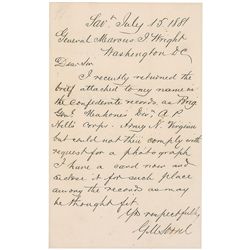 Sav. July 15. 1881
General Marcus J Wright
Washington DC
Dear Sir
I recently returned the
brief attached to my name in
the Confederate records, as Brig
Genl Mahones Div. A P
Hills Corps. Army N. Virginia
but could not then comply with
request for a photograph
I have a card now and
enclose it for such place
among the records as may
be thought fit.
Yrs respectfully
G M Sorrel